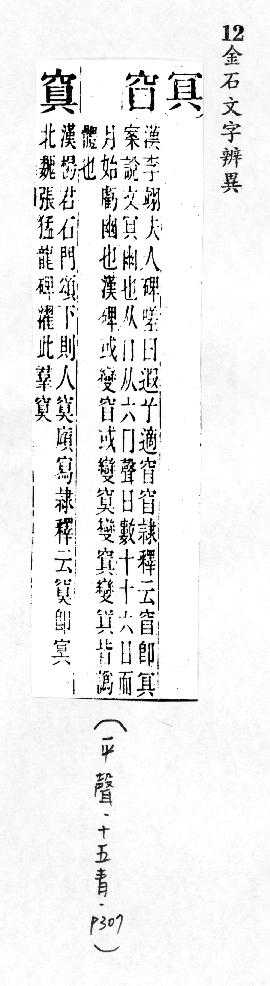 12
金石文字辨異
冥
窅
漢李翊夫人碑嗟曰遐子適窅窅隸釋云窅卽冥
案說文冥幽也从日从六冂聲日數十十六日而
月始虧幽也漢碑或變窅或變寞變寘變寘皆譌
體也
寘
漢楊君石門頌下則人寞廎寫隸釋云寞卽冥
北魏張猛龍碑濯此羣寞
(平聲.十五青.P307)